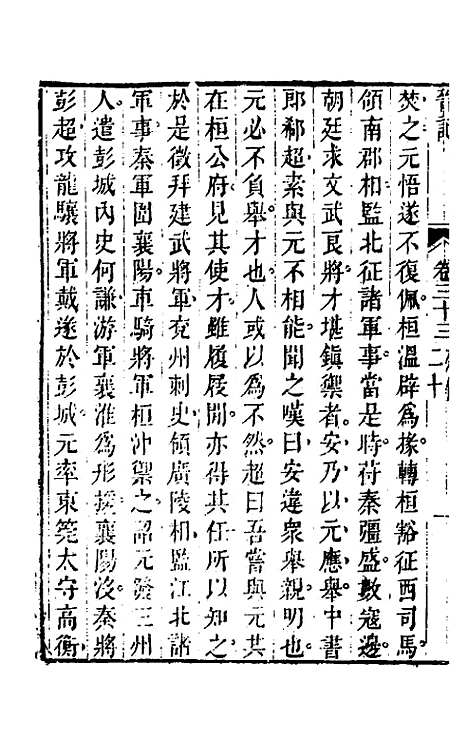 晉記
卷三十三
二十
焚之元悟遂不復佩桓溫辟為掾轉桓豁征西司馬
領南郡相監北征諸軍事當是時苻秦彊盛數寇邊
朝廷求文武良將才堪鎮禦者安乃以元應舉中書
郎郗超素與元不相能聞之嘆曰安違衆舉親明也
元必不負舉才也人或以為不然超曰吾嘗與元共
在桓公府見其使才雖履屐間亦得其任所以知之
於是徵拜建武將軍兖州刺史領廣陵相監江北諸
軍事秦軍圍襄陽車騎將軍桓沖禦之詔元發三州
人遣彭城內史何謙游軍襄淮為形援襄陽沒秦將
彭超攻龍驤將軍戴遂於彭城元率東筦太守高衡